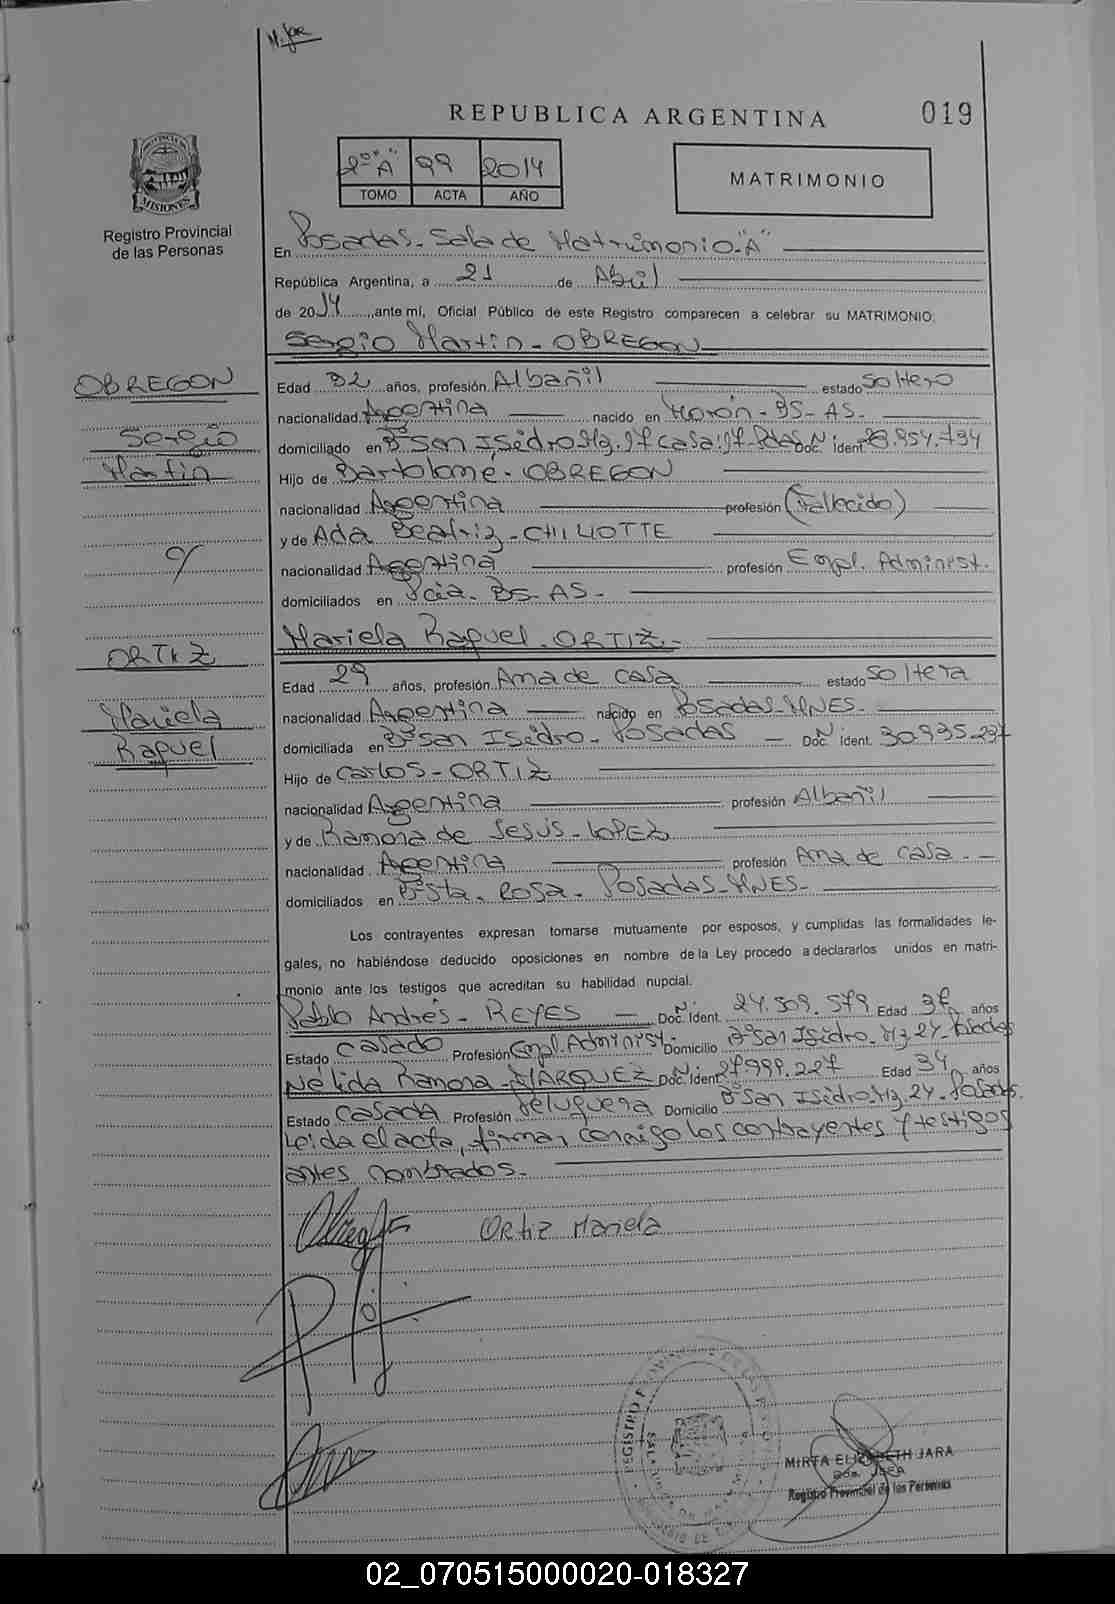 REPUBLICA ARGENTINA 019
2º "A" 99 2014
TOMO ACTA AÑO
MATRIMONIO
PROVINCIA DE
MISIONES
Registro Provincial
de las Personas
En Posadas - Sala de Matrimonio "A"
República Argentina, a 21 de Abril
de 2014, ante mí, Oficial Público de este Registro comparecen a celebrar su MATRIMONIO:
Sergio Martin - OBREGON
OBREGON
Sergio
Martin
Edad 32 años, profesión Albañil estado soltero
nacionalidad Argentina nacido en Morón - BS - AS -
domiciliado en Bº San Isidro Mz. casa: Doc. N ident. 28.954.734
Hijo de Bartolomé - OBREGON
nacionalidad Argentina profesión (Fallecido)
y de Ada Beatriz - CHILIOTTE
nacionalidad Argentina profesión Empl. Administ.
domiciliados en Pcia. BS - AS -
c/
Mariela Raquel - ORTIZ -
ORTIZ
Mariela
Raquel
Edad 29 años, profesión Ama de casa estado soltera
nacionalidad Argentina nacido en Posadas - MNES -
domiciliada en Bº San Isidro - Posadas - Doc. N ident. 30.935.297
Hijo de Carlos - ORTIZ
nacionalidad Argentina profesión Albañil
y de Ramona de Jesús - LOPEZ
nacionalidad Argentina profesión Ama de casa -
domiciliados en Bº Sta. Rosa - Posadas - MNES -
Los contrayentes expresan tomarse mutuamente por esposos, y cumplidas las formalidades le-
gales, no habiéndose deducido oposiciones en nombre de la Ley procedo a declararlos unidos en matri-
monio ante los testigos que acreditan su habilidad nupcial.
Pablo Andrés - REYES - Doc. N Ident. 24.509.579 Edad años
Estado casado Profesión Empl. Administ. Domicilio Bº San Isidro - Mz 24 - Posadas
Nélida Ramona - MÁRQUEZ Doc. N Ident. 27.999.227 Edad 34 años
Estado Casada Profesión Peluquera Domicilio Bº San Isidro - Mz. 24 - Posadas.
Leida el acta, firman conmigo los contrayentes y testigos
antes nombrados. -
Ortiz Mariela
MIRTA ELIZABETH JARA
Registro Provincial de las Personas
02_070515000020-018327